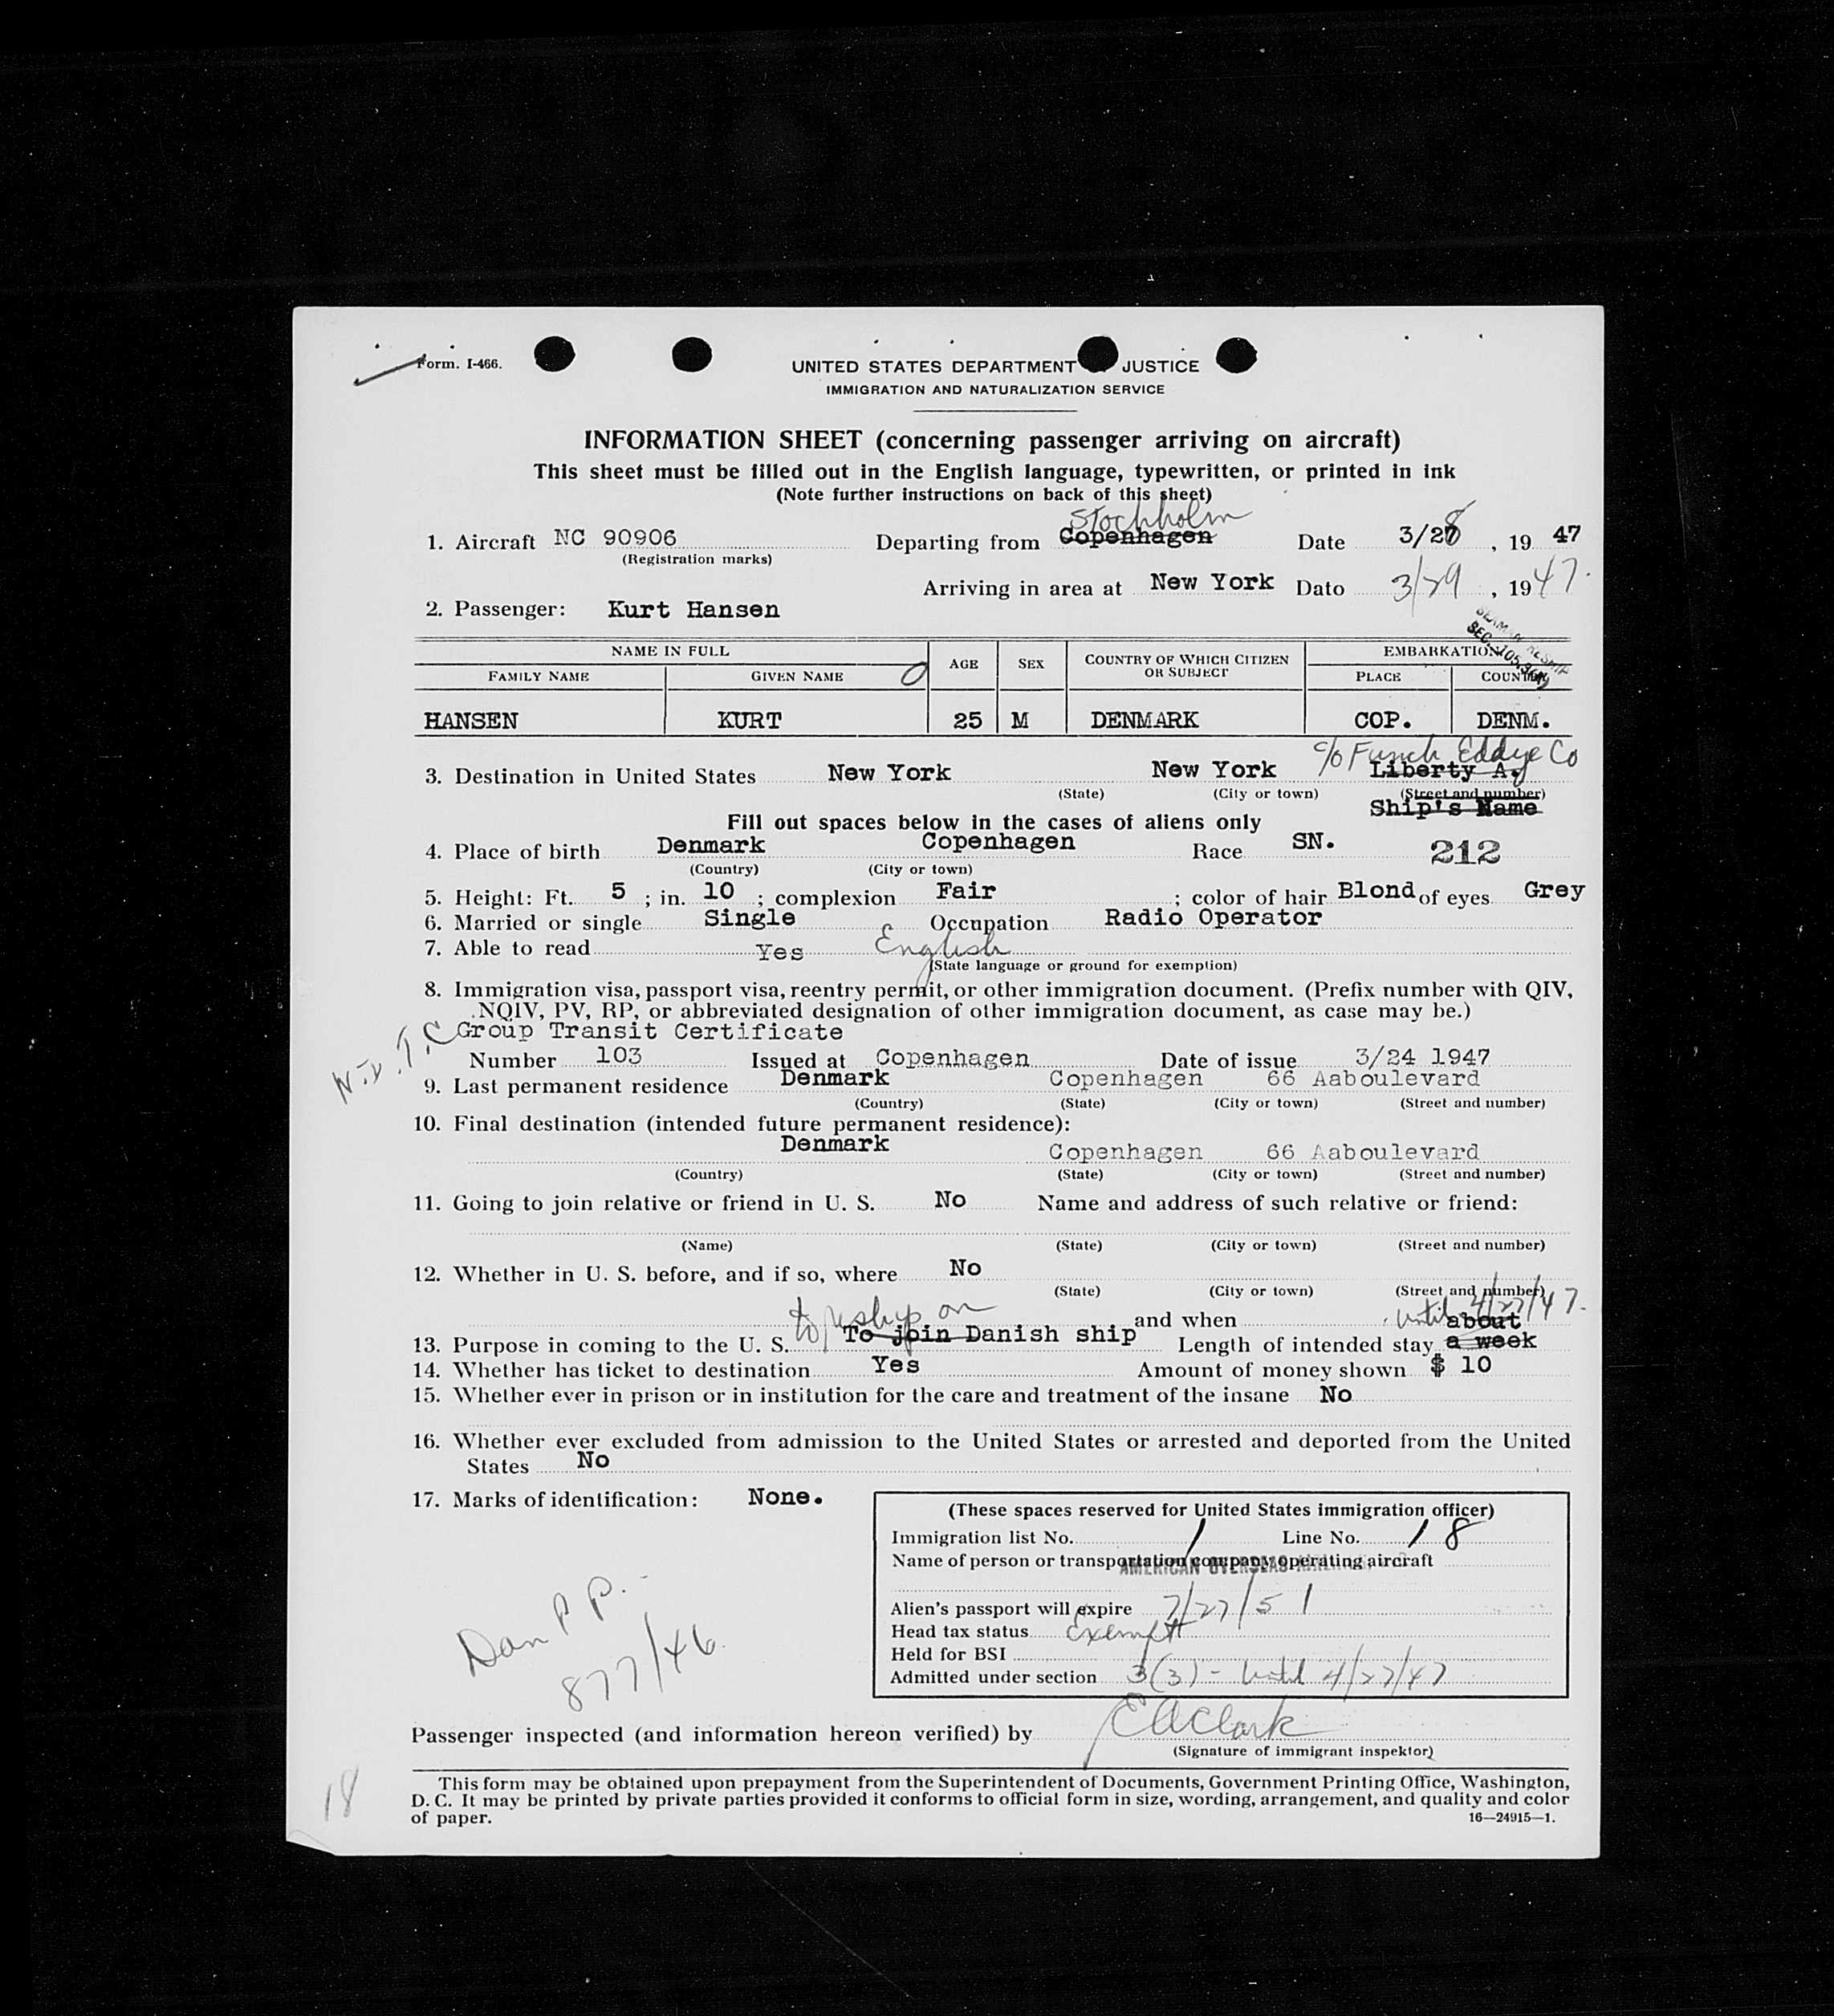 Form. I-466.
UNITED STATES DEPARTMENT JUSTICE
IMMIGRATION AND NATURALIZATION SERVICE
INFORMATION SHEET (concerning passenger arriving on aircraft)
This sheet must be filled out in the English language, typewritten, or printed in ink
(Note further instructions on back of this sheet)
Stockholm
1. Aircraft NC 90906 Departing from Copenhagen Date 3/28, 19 47
(Registration marks)
Arriving in area at New York Dato 3/29, 1947.
2. Passenger: Kurt Hansen
SEAMAN RESHIP
SEC. 105.36
NAME IN FULL AGE SEX COUNTRY OF WHICH CITIZEN OR SUBJECT EMBARKATION
FAMILY NAME GIVEN NAME PLACE COUNTRY
HANSEN KURT 25 M DENMARK COP. DENM.
c/o Funch Eddye Co
3. Destination in United States New York New York Liberty A.
(State) (City or town) (Street and number)
Ship's Name
Fill out spaces below in the cases of aliens only
4. Place of birth Denmark Copenhagen Race SN. 212
(Country) (City or town)
5. Height: Ft. 5 ; in. 10 ; complexion Fair ; color of hair Blond of eyes Grey
6. Married or single Single Occupation Radio Operator
7. Able to read Yes English
(State language or ground for exemption)
8. Immigration visa, passport visa, reentry permit, or other immigration document. (Prefix number with QIV,
NQIV, PV, RP, or abbreviated designation of other immigration document, as case may be.)
Group Transit Certificate
Number 103 Issued at Copenhagen Date of issue 3/24 1947
9. Last permanent residence Denmark Copenhagen 66 Aaboulevard
(Country) (State) (City or town) (Street and number)
10. Final destination (intended future permanent residence):
Denmark Copenhagen 66 Aaboulevard
(Country) (State) (City or town) (Street and number)
11. Going to join relative or friend in U. S. No Name and address of such relative or friend:
(Name) (State) (City or town) (Street and number)
12. Whether in U. S. before, and if so, where No
(State) (City or town) (Street and number)
to reship on and when until 4/27/47. about
13. Purpose in coming to the U. S. To join Danish ship Length of intended stay a week
14. Whether has ticket to destination Yes Amount of money shown $ 10
15. Whether ever in prison or in institution for the care and treatment of the insane No
16. Whether ever excluded from admission to the United States or arrested and deported from the United
States No
17. Marks of identification: None.
(These spaces reserved for United States immigration officer)
Immigration list No. 1 Line No. 18
Name of person or transportation company operating aircraft
AMERICAN OVERSEAS AIRLINES
Alien's passport will expire 7/27/51
Head tax status Exempt
Held for BSI
Admitted under section 3(3) - Until 4/27/47
Dan P P.
877/46
Passenger inspected (and information hereon verified) by E A Clark
(Signature of immigrant inspektor)
18
This form may be obtained upon prepayment from the Superintendent of Documents, Government Printing Office, Washington,
D. C. It may be printed by private parties provided it conforms to official form in size, wording, arrangement, and quality and color
of paper.
16—24915—1.